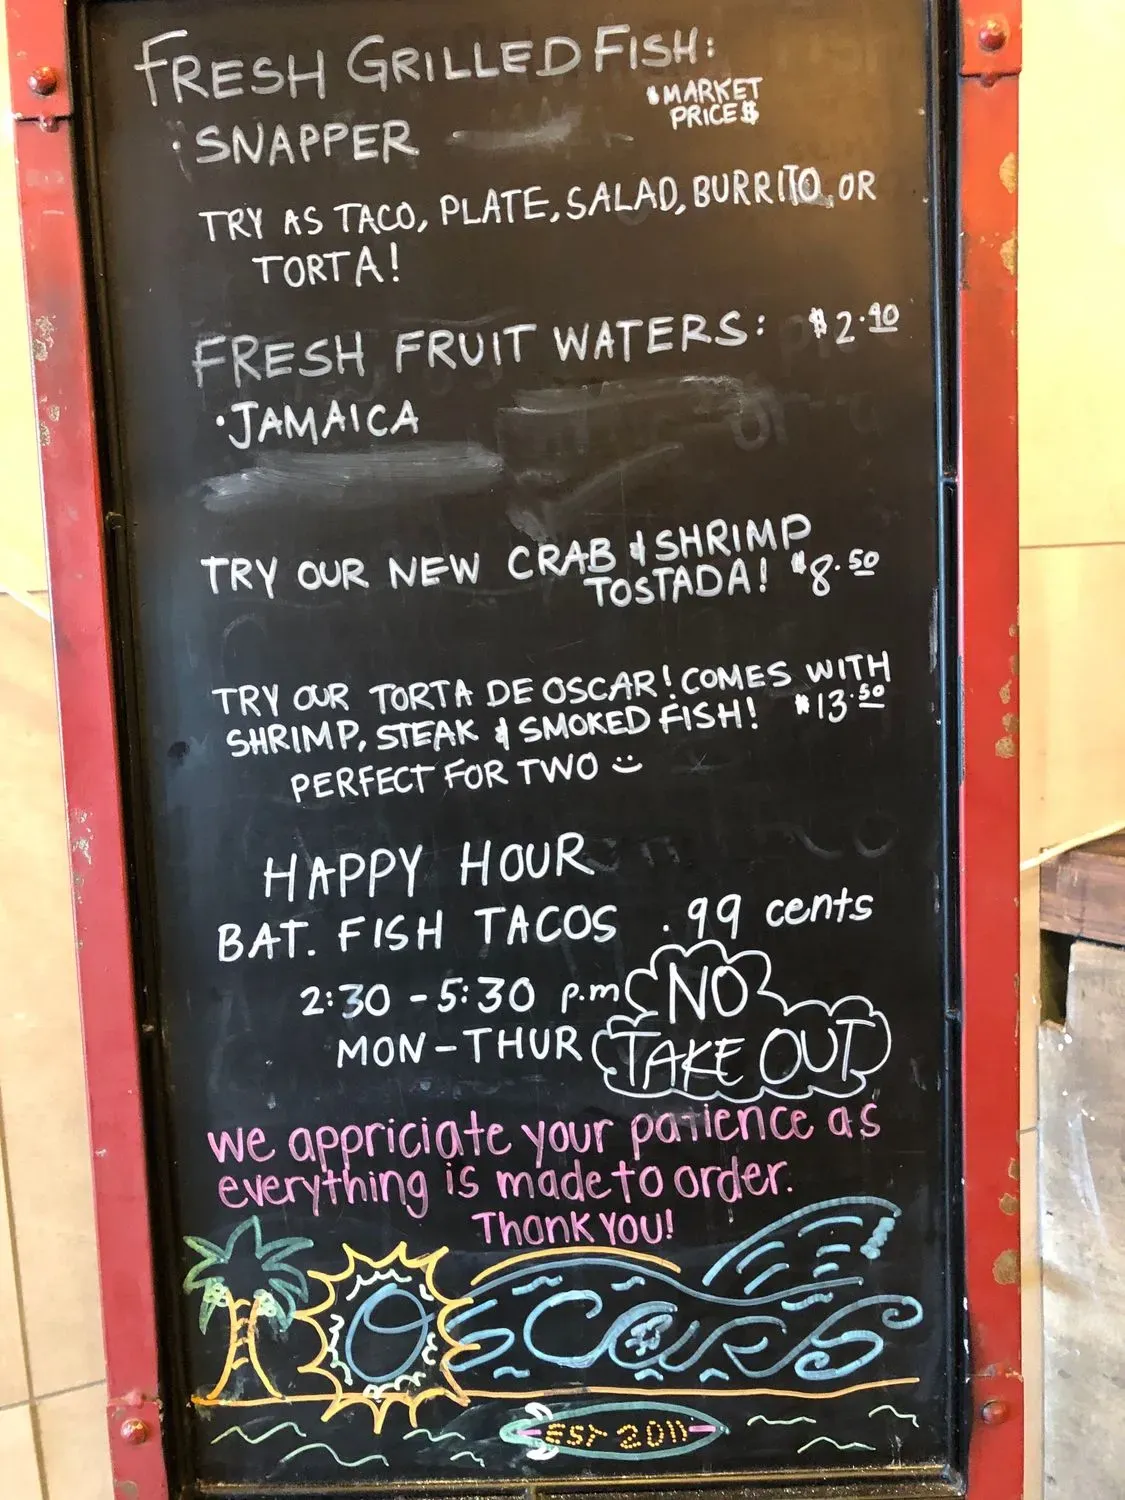 FRESH GRILLED FISH:
$MARKET
PRICE$
·SNAPPER
TRY AS TACO, PLATE, SALAD, BURRITO OR
TORTA!
FRESH FRUIT WATERS: $2.90
·JAMAICA
TRY OUR NEW CRAB & SHRIMP
TOSTADA! $8.50
TRY OUR TORTA DE OSCAR! COMES WITH
SHRIMP, STEAK & SMOKED FISH! $13.50
PERFECT FOR TWO
HAPPY HOUR
BAT. FISH TACOS .99 cents
2:30 - 5:30 p.m
MON-THUR
NO
TAKE OUT
we appriciate your patience as
everything is made to order.
Thank YOU!
OSCARS
EST 2011